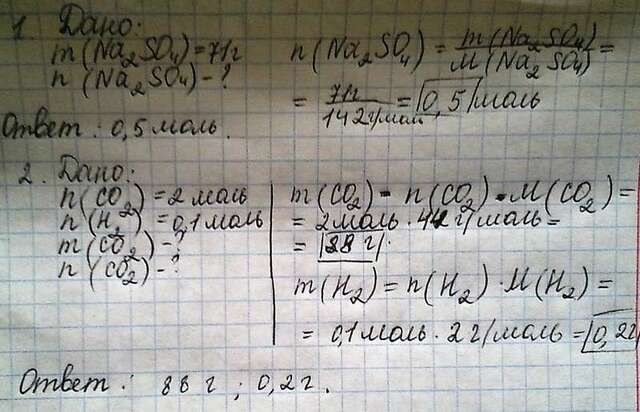 1. Дано:
m(Na₂SO₄)=71г
n(Na₂SO₄)-?
n(Na₂SO₄)= m(Na₂SO₄)/M(Na₂SO₄)=
= 71г/142г/моль = 0,5 моль
Ответ: 0,5 моль.
2. Дано:
n(CO₂)=2 моль
n(H₂)=0,1 моль
m(CO₂)-?
n(CO₂)-?
m(CO₂)=n(CO₂)·M(CO₂)=
=2моль·44г/моль=
=88г.
m(H₂)=n(H₂)·M(H₂)=
=0,1моль·2г/моль=0,2г
Ответ: 88г; 0,2г.